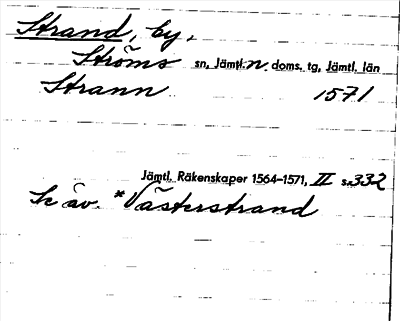 Strand, by,
Ströms sn, Jämtl. n. doms. tg, Jämtl. län
Strann 1571
Jämtl. Räkenskaper 1564–1571, II s. 332
Se äv. *Västerstrand